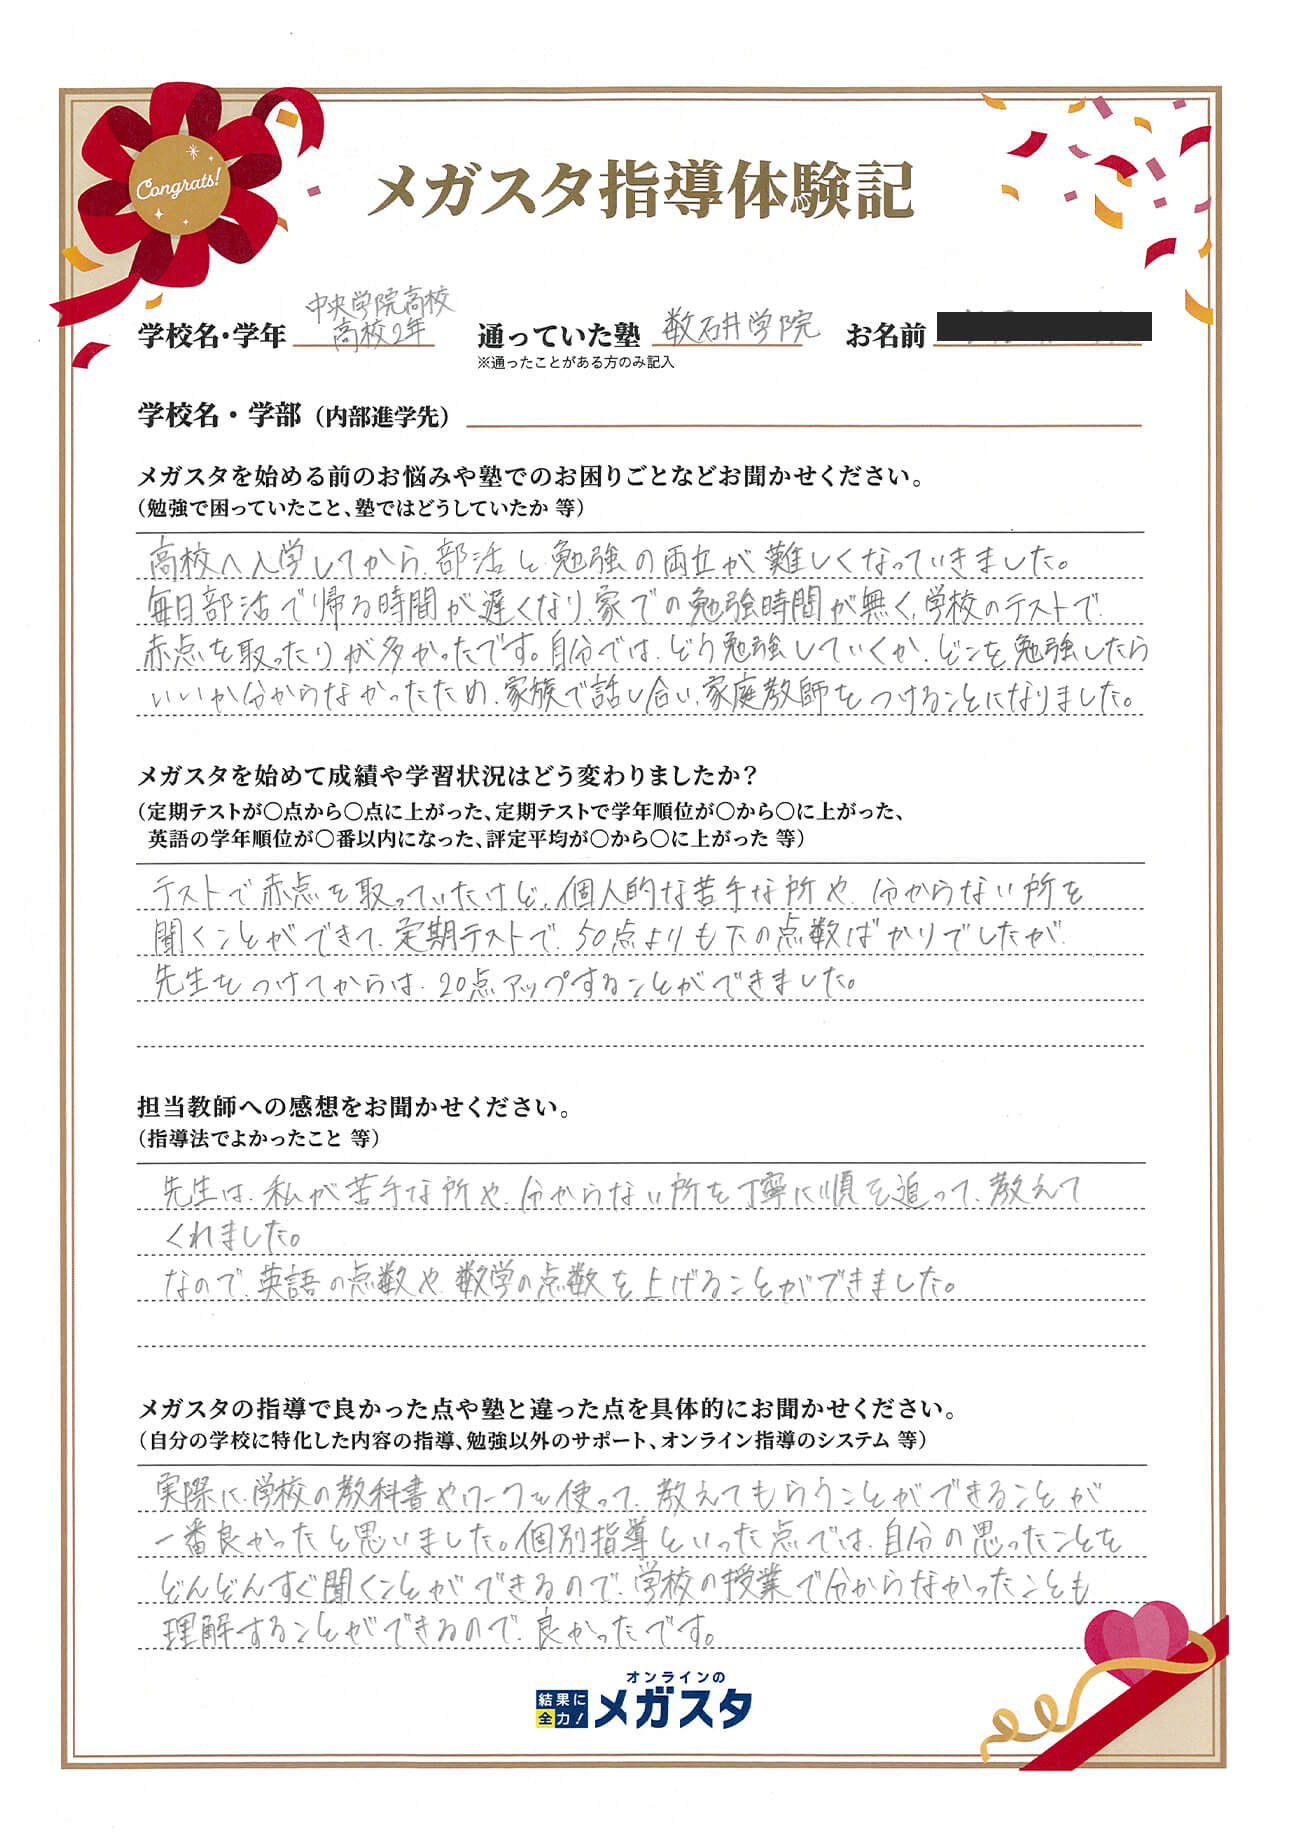 Congrats!
メガスタ指導体験記
学校名・学年 中央学院高校 高校2年 通っていた塾 学院 お名前
※通ったことがある方のみ記入
学校名・学部（内部進学先）
メガスタを始める前のお悩みや塾でのお困りごとなどお聞かせください。
（勉強で困っていたこと、塾ではどうしていたか 等）
高校へ入学してから、部活と勉強の両立が難しくなっていきました。
毎日部活で帰る時間が遅くなり、家での勉強時間が無く、学校のテストで、
赤点を取ったりが多かったです。自分では、どう勉強していくか、どこを勉強したら
いいか分からなかったため、家族で話し合い、家庭教師をつけることになりました。
メガスタを始めて成績や学習状況はどう変わりましたか？
（定期テストが〇点から〇点に上がった、定期テストで学年順位が〇から〇に上がった、
英語の学年順位が〇番以内になった、評定平均が〇から〇に上がった 等）
テストで赤点を取っていたけど、個人的な苦手な所や、分からない所を
聞くことができて、定期テストで、50点よりも下の点数ばかりでしたが、
先生をつけてからは、20点アップすることができました。
担当教師への感想をお聞かせください。
（指導法でよかったこと 等）
先生は、私が苦手な所や、分からない所を丁寧に順を追って、教えて
くれました。
なので、英語の点数や、数学の点数を上げることができました。
メガスタの指導で良かった点や塾と違った点を具体的にお聞かせください。
（自分の学校に特化した内容の指導、勉強以外のサポート、オンライン指導のシステム 等）
実際に、学校の教科書やワークを使って、教えてもらうことができることが
一番良かったと思いました。個別指導といった点では、自分の思ったことを
どんどんすぐ聞くことができるので、学校の授業で分からなかったことも
理解することができるので、良かったです。
オンラインの
結果に全力！ メガスタ